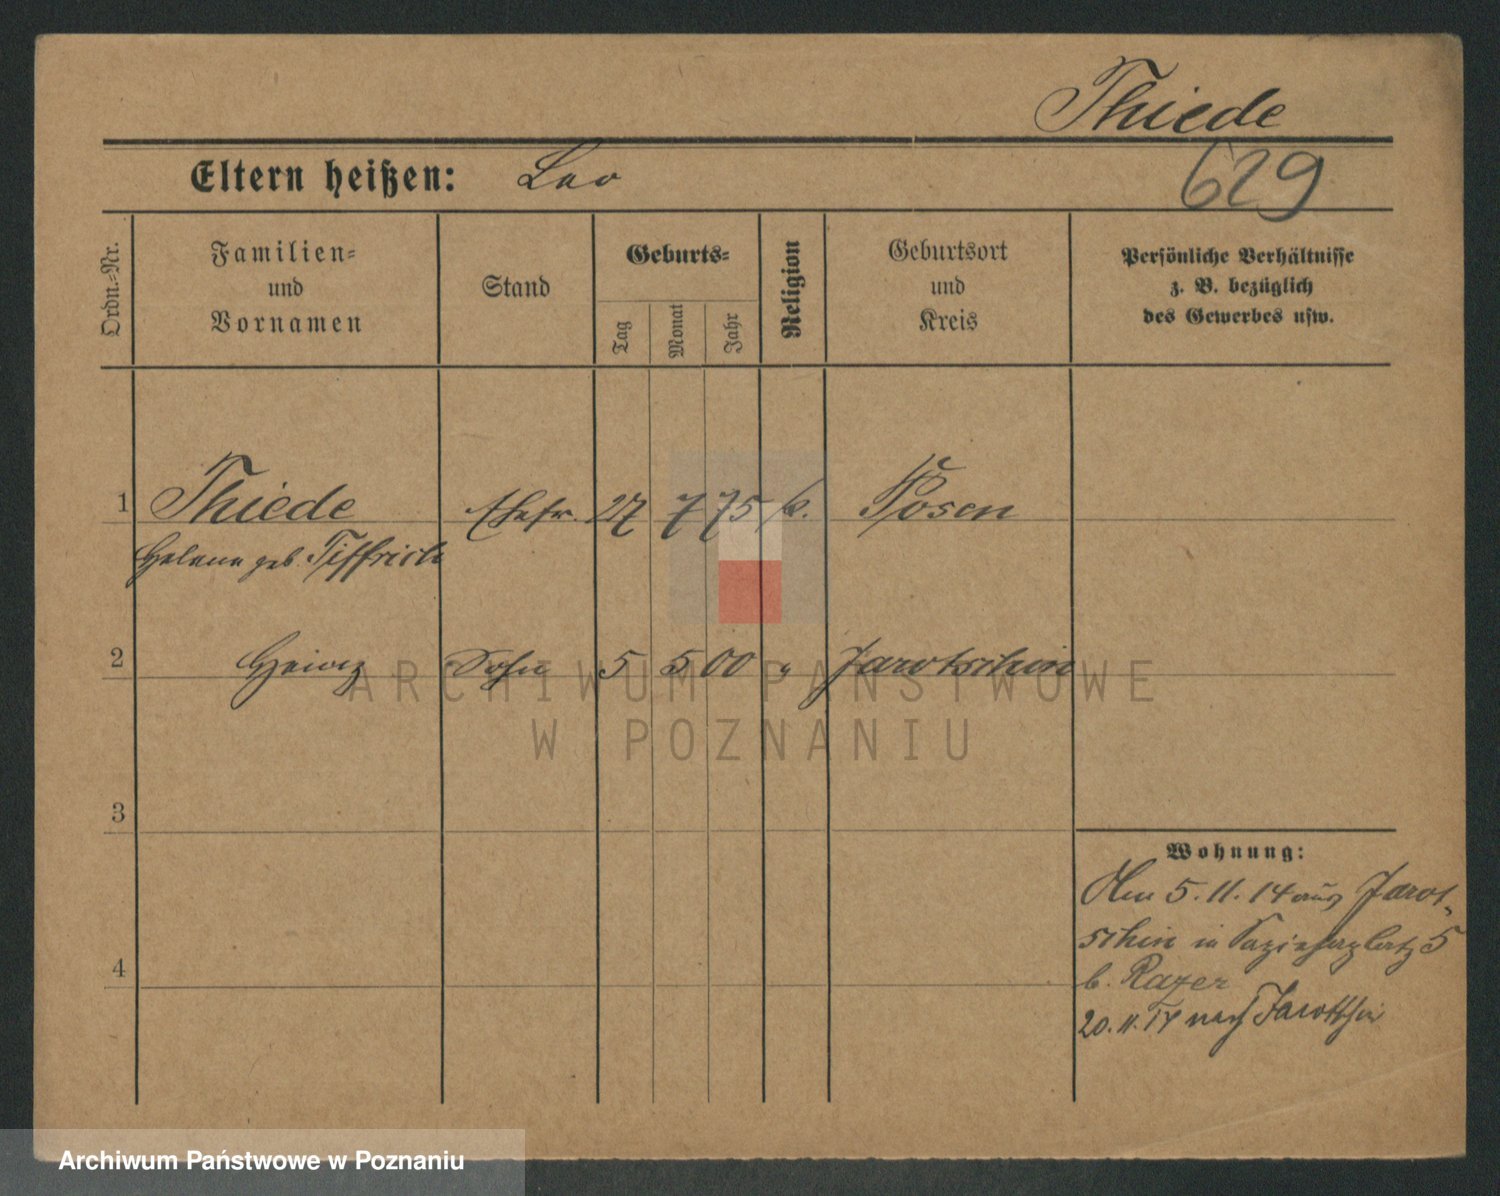 Thiede
Eltern heißen: Leo
629
Ordn.-Nr.
Familien-
und
Vornamen
Stand
Geburts-
Tag
Monat
Jahr
Religion
Geburtsort
und
Kreis
Persönliche Verhältnisse
z. B. bezüglich
des Gewerbes usw.
1 Thiede Ehefr. 27 7 75 k. Posen
Helene geb.
2 Heinz Sohn 5 5 00 " Jarotschin
3
4
Wohnung:
Am 5.11.14 aus Jarot-
schin in Sapiehaplatz 5
b.
20.11.14 nach Jarotschin
ARCHIWUM PAŃSTWOWE
W POZNANIU
Archiwum Państwowe w Poznaniu